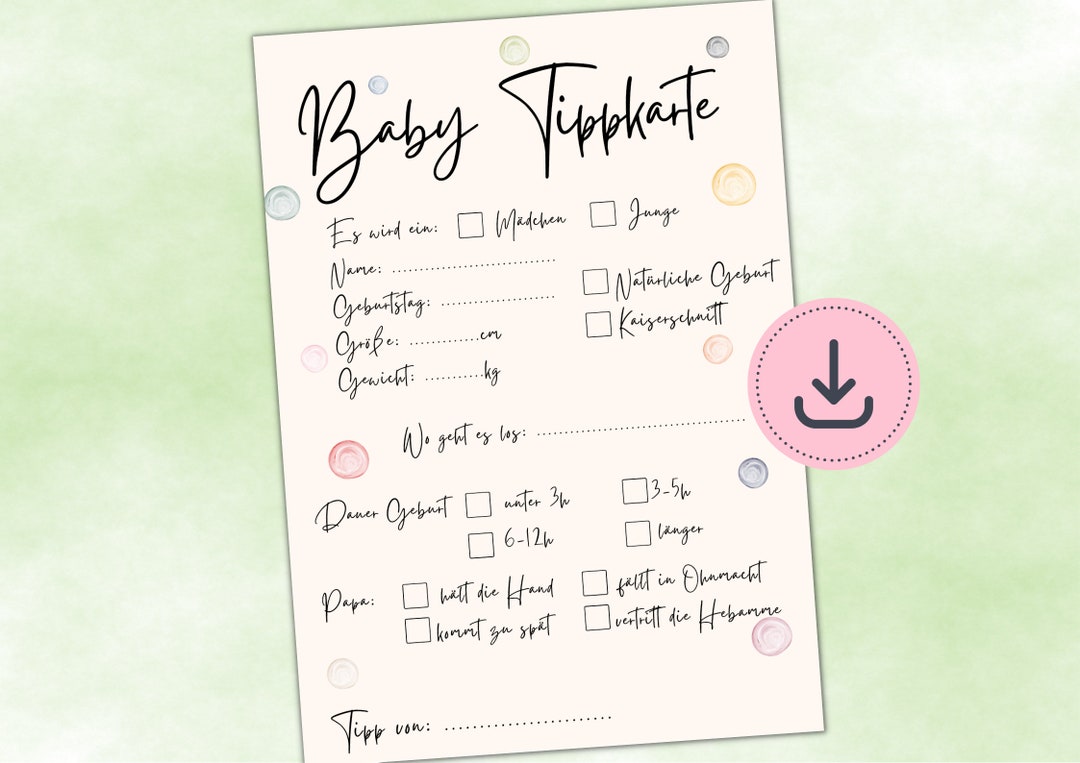 Baby Tippkarte
Es wird ein: ☐ Mädchen ☐ Junge
Name: ..............................
☐ Natürliche Geburt
Geburtstag: .....................
☐ Kaiserschnitt
Größe: .............cm
Gewicht: ...........kg
Wo geht es los: ......................................
Dauer Geburt ☐ unter 3h ☐ 3-5h
☐ 6-12h ☐ länger
Papa: ☐ hält die Hand ☐ fällt in Ohnmacht
☐ kommt zu spät ☐ vertritt die Hebamme
Tipp von: ........................